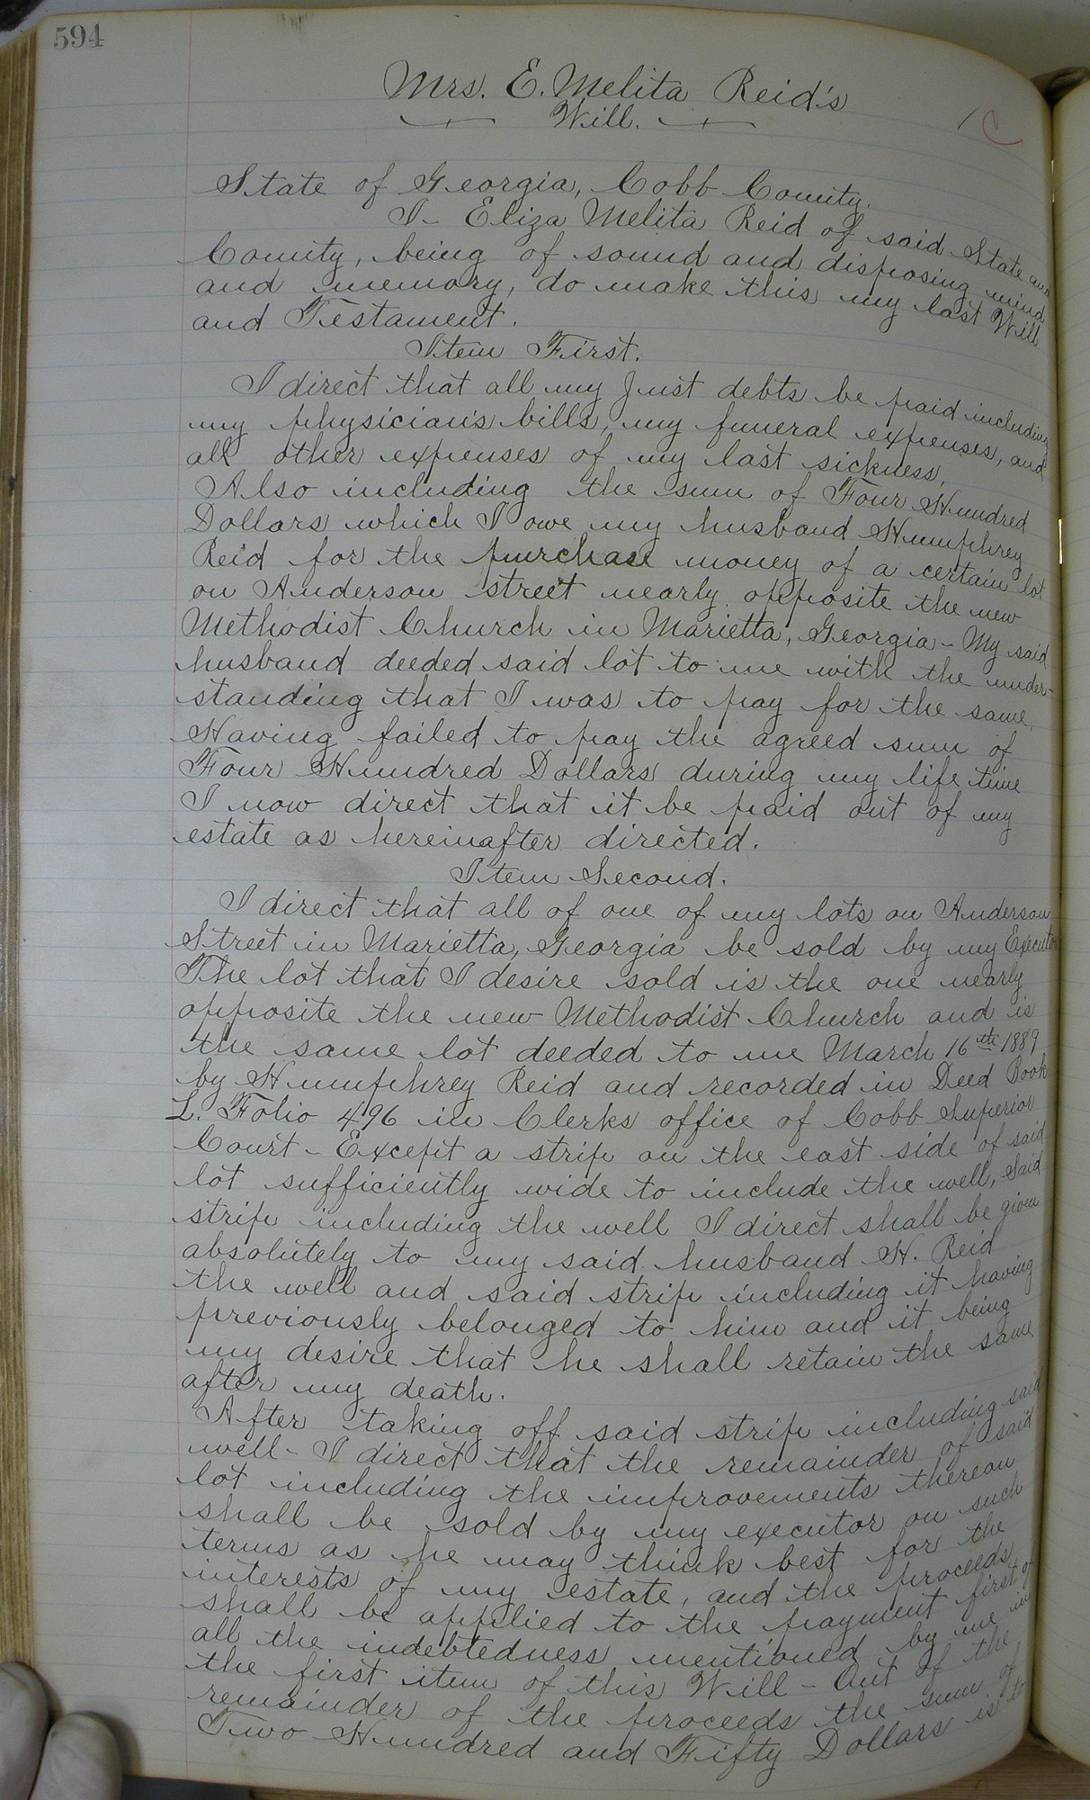 594
Mrs. E. Melita Reid's
Will.
C
State of Georgia, Cobb County.
I - Eliza Melita Reid of said State and
County, being of sound and disposing mind
and memory, do make this my last Will
and Testament.
Item First.
I direct that all my Just debts be paid including
my physician's bills, my funeral expenses, and
all other expenses of my last sickness,
Also including the sum of Four Hundred
Dollars which I owe my husband Humphrey
Reid for the purchase money of a certain lot
on Anderson street nearly opposite the new
Methodist Church in Marietta, Georgia - My said
husband deeded said lot to me with the under-
standing that I was to pay for the same.
Having failed to pay the agreed sum of
Four Hundred Dollars during my life time
I now direct that it be paid out of my
estate as hereinafter directed.
Item Second.
I direct that all of one of my lots on Anderson
Street in Marietta, Georgia be sold by my Executor
The lot that I desire sold is the one nearly
opposite the new Methodist Church and is
the same lot deeded to me March 16th 1889
by Humphrey Reid and recorded in Deed Book
L. Folio 496 in Clerks office of Cobb Superior
Court - Except a strip on the east side of said
lot sufficiently wide to include the well, Said
strip including the well I direct shall be given
absolutely to my said husband H. Reid
the well and said strip including it having
previously belonged to him and it being
my desire that he shall retain the same
after my death.
After taking off said strip including said
well - I direct that the remainder of said
lot including the improvements thereon
shall be sold by my executor on such
terms as he may think best for the
interests of my estate, and the proceeds
shall be applied to the payment first of
all the indebtedness mentioned by me in
the first item of this Will - Out of the
remainder of the proceeds the sum of
Two Hundred and Fifty Dollars is to